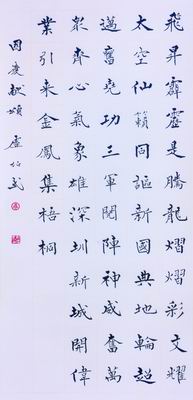 飛昇霹靂是騰龍熠熠彩文耀
太空仙籟同謳新國典地輪超
邁舊堯功三軍閱陣神威奮萬
眾齊心氣象雄深圳新城開偉
業引来金鳳集梧桐
國慶獻頌